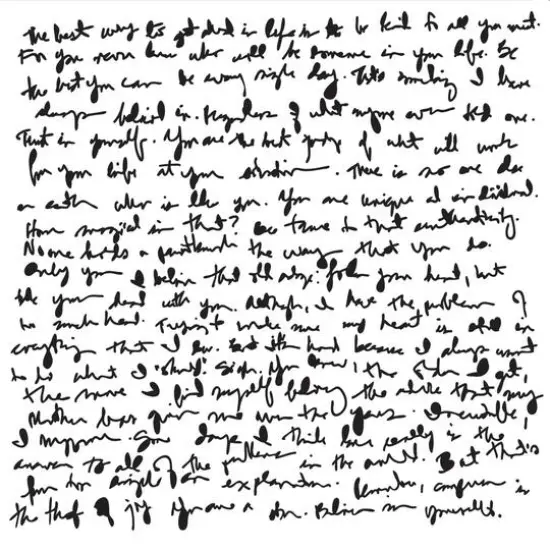 The best way to get ahead in life is to be kind to all you meet.
For you never know who will be someone in your life. Be
the best you can be every single day. This something I have
always believed in. Regardless of what anyone ever told me.
Trust in yourself. You are the best judge of what will work
for your life at your situation. There is no one else
on earth who is like you. You are unique
How magical is that? authenticity.
No one holds a the way that you do.
Only you I believe that old adage: follow your heart, but
take your head with you. Although, I have the problem of
too much heart. I make sure my heart is still in
everything that I do. And it's hard because I always want
to do what I The older I get,
the more I find myself believing the advice that my
Mother has given me over the years.
I suppose. Some days I think love really is the
answer to all of the problems in the world. But that's
far too simple of an explanation. Remember, comparison is
the thief of joy. You are a star. Believe in yourself.